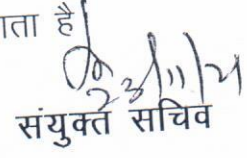 ाता है
23/11/21
संयुक्त सचिव